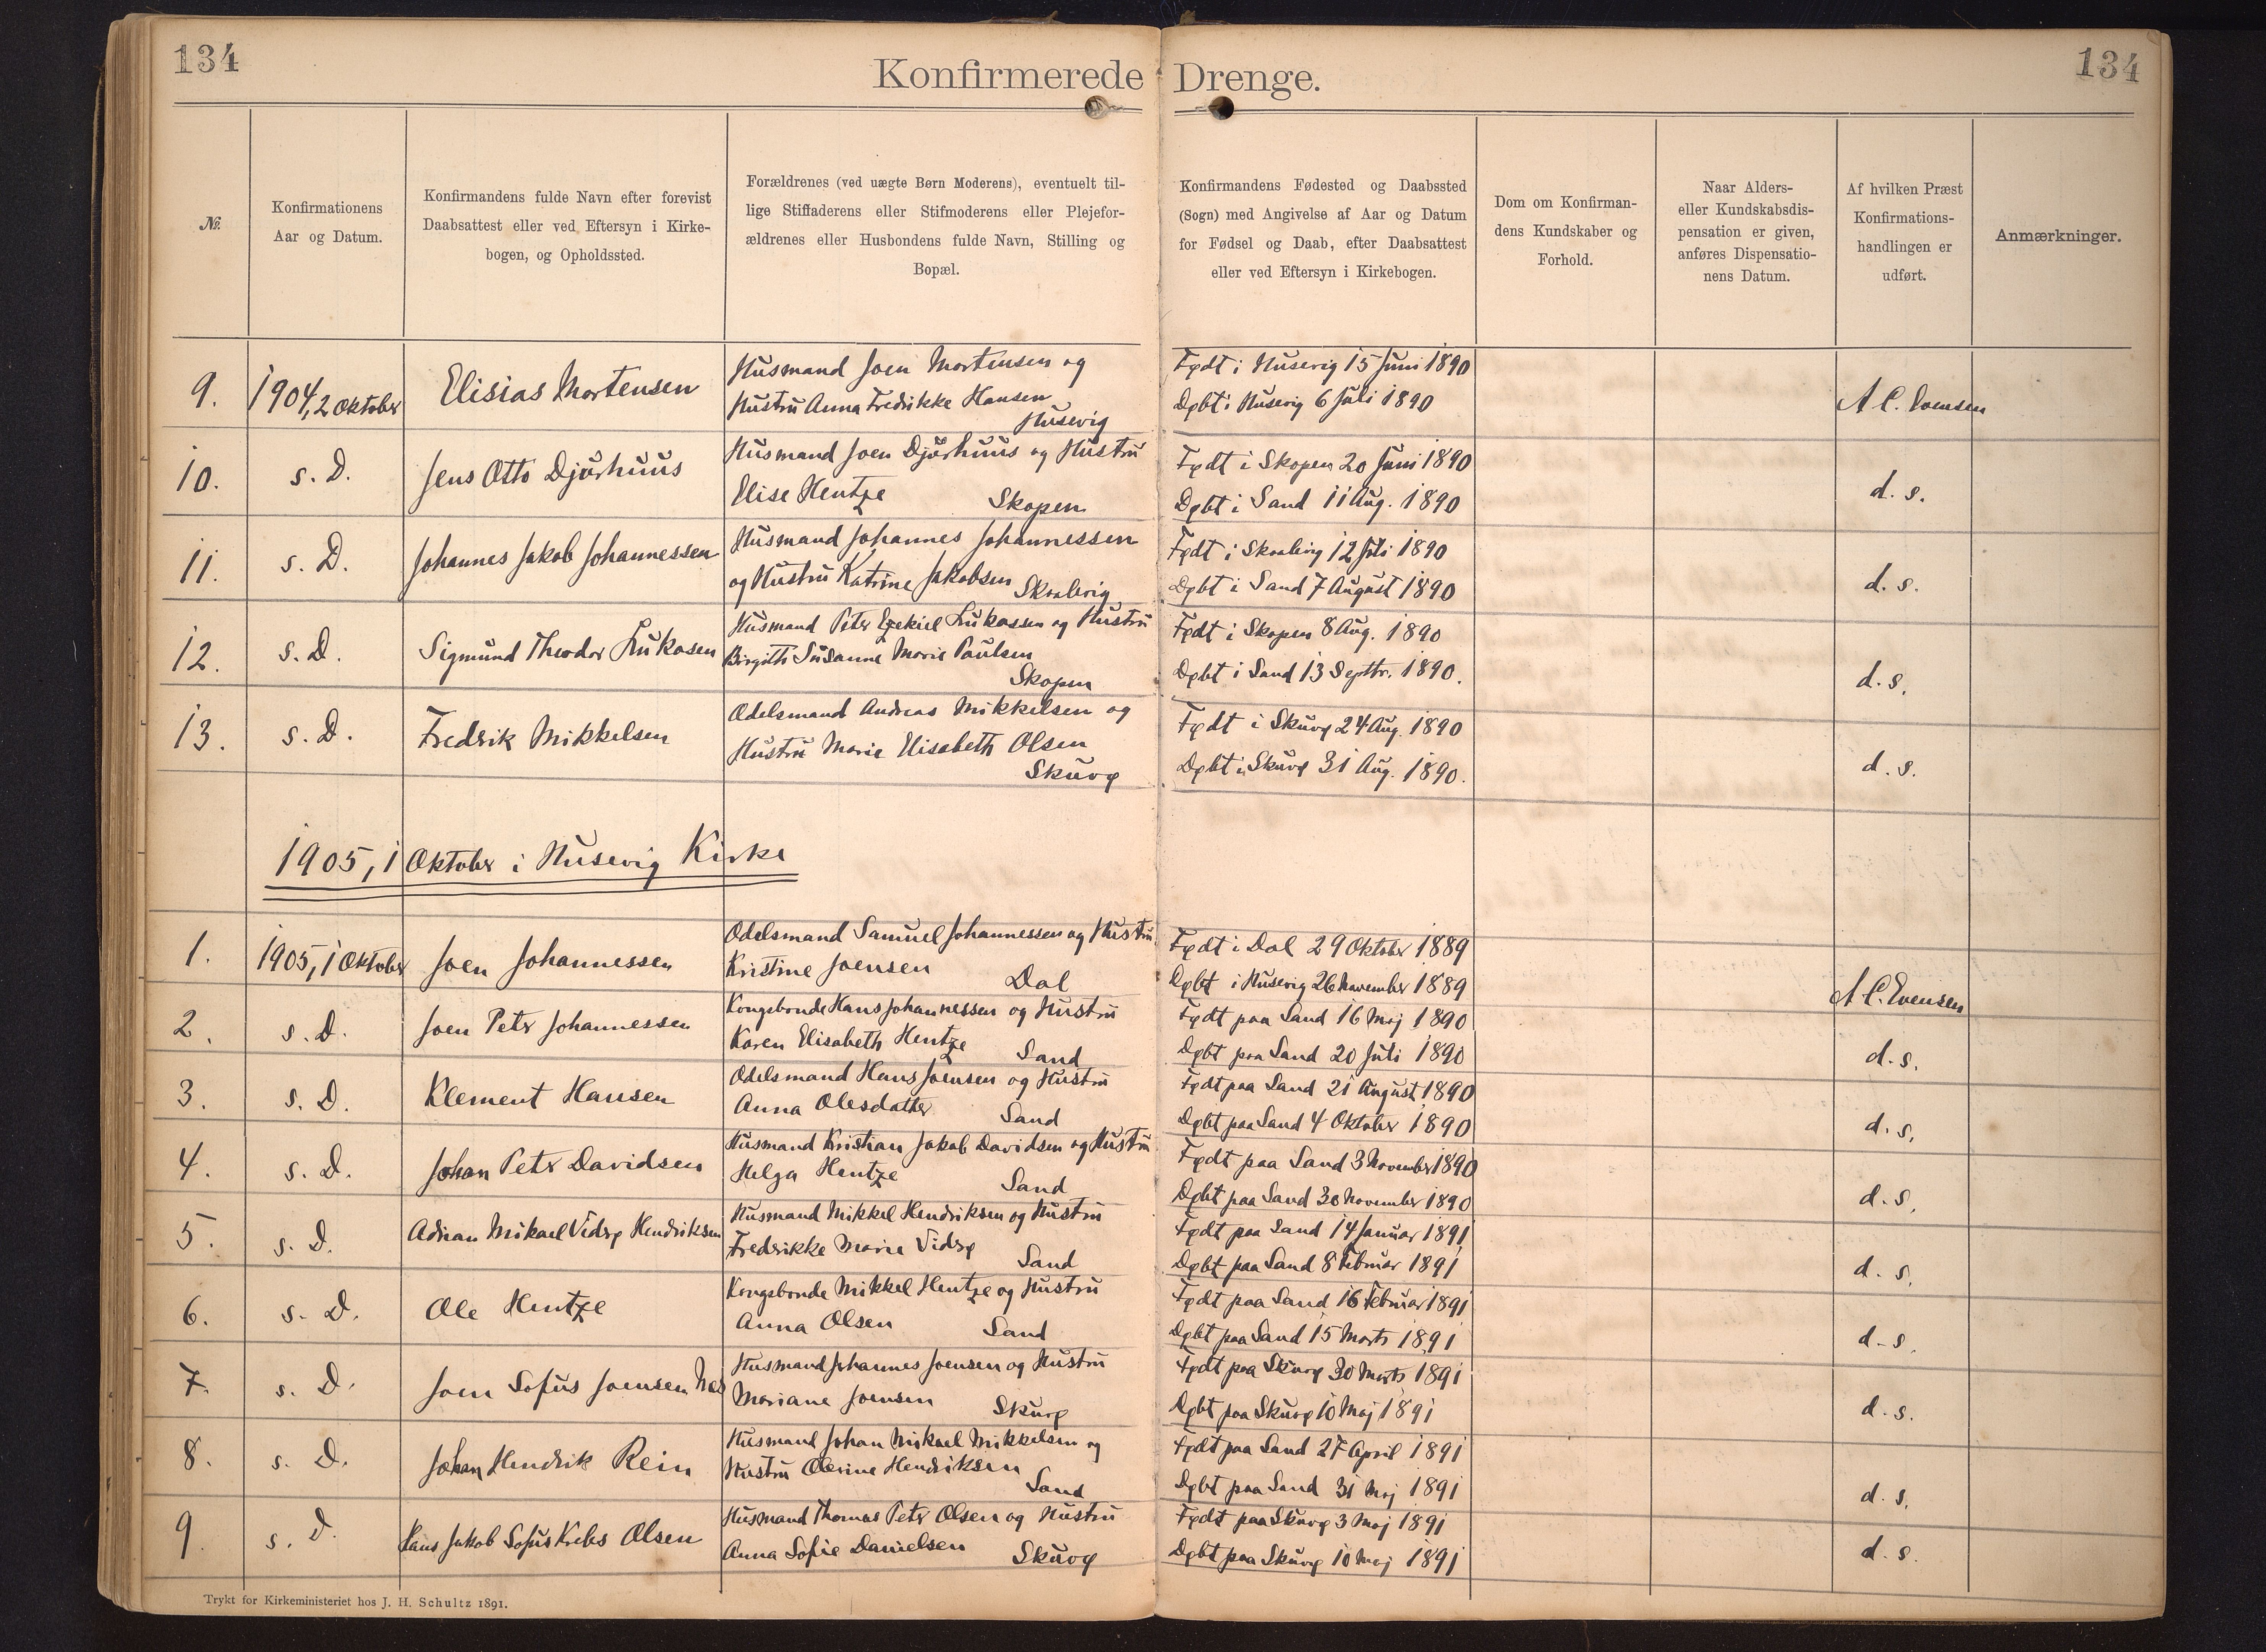 134
Konfirmerede Drenge.
134
№
Konfirmationens
Aar og Datum.
Konfirmandens fulde Navn efter forevist
Daabsattest eller ved Eftersyn i Kirke-
bogen, og Opholdssted.
Forældrenes (ved uægte Børn Moderens), eventuelt til-
lige Stiffaderens eller Stifmoderens eller Plejefor-
ældrenes eller Husbondens fulde Navn, Stilling og
Bopæl.
Konfirmandens Fødested og Daabssted
(Sogn) med Angivelse af Aar og Datum
for Fødsel og Daab, efter Daabsattest
eller ved Eftersyn i Kirkebogen.
Dom om Konfirman-
dens Kundskaber og
Forhold.
Naar Alders-
eller Kundskabsdis-
pensation er given,
anføres Dispensatio-
nens Datum.
Af hvilken Præst
Konfirmations-
handlingen er
udført.
Anmærkninger.
9.
1904, 2 Oktober
Elisias Mortensen
Husmand Joen Mortensen og
Hustru Anna Fredrikke Hansen
Husevig
Født i Husevig 15 Juni 1890
Døbt i Husevig 6 Juli 1890
A C. Evensen
10.
s. D.
Jens Otto Djurhuus
Husmand Joen Djurhuus og Hustru
Elise Hentze
Skopen
Født i Skopen 20 Juni 1890
Døbt i Sand 11 Aug. 1890
d. s.
11.
s. D.
Johannes Jakob Johannessen
Husmand Johannes Johannessen
og Hustru Katrine Jakobsen
Skaalevig
Født i Skaalevig 12 Juli 1890
Døbt i Sand 7 August 1890
d. s.
12.
s. D.
Sigmund Theodor Lukasen
Husmand Peter Ezekiel Lukassen og Hustru
Birgith Susanne Marie Paulsen
Skopen
Født i Skopen 8 Aug. 1890
Døbt i Sand 13 Septbr. 1890.
d. s.
13.
s. D.
Fredrik Mikkelsen
Odelsmand Andreas Mikkelsen og
Hustru Marie Elisabeth Olsen
Skuvø
Født i Skuvø 24 Aug. 1890
Døbt i Skuvø 31 Aug. 1890.
d. s.
1905, 1 Oktober i Husevig Kirke
1.
1905, 1 Oktober
Joen Johannessen
Odelsmand Samuel Johannessen og Hustru
Kristine Joensen
Dal
Født i Dal 29 Oktober 1889
Døbt i Husevig 26 November 1889
A C. Evensen
2.
s. D.
Joen Peter Johannessen
Kongsbonde Hans Johannessen og Hustru
Karen Elisabeth Hentze
Sand
Født paa Sand 16 Maj 1890
Døbt paa Sand 20 Juli 1890
d. s.
3.
s. D.
Klement Hansen
Odelsmand Hans Joensen og Hustru
Anna Olesdatter
Sand
Født paa Sand 21 August 1890
Døbt paa Sand 4 Oktober 1890
d. s.
4.
s. D.
Johan Peter Davidsen
Husmand Kristian Jakob Davidsen og Hustru
Helga Hentze
Sand
Født paa Sand 3 November 1890
Døbt paa Sand 30 November 1890
d. s.
5.
s. D.
Adrian Mikael Viderø Hendriksen
Husmand Mikkel Hendriksen og Hustru
Fredrikke Marie Viderø
Sand
Født paa Sand 14 Januar 1891
Døbt paa Sand 8 Februar 1891
d. s.
6.
s. D.
Ole Hentze
Kongsbonde Mikkel Hentze og Hustru
Anna Olsen
Sand
Født paa Sand 16 Februar 1891
Døbt paa Sand 15 Marts 1891
d. s.
7.
s. D.
Joen Sofus Joensen Næs
Husmand Johannes Joensen og Hustru
Mariane Joensen
Skuvø
Født paa Skuvø 30 Marts 1891
Døbt paa Skuvø 10 Maj 1891
d. s.
8.
s. D.
Johan Hendrik Rein
Husmand Johan Mikael Mikkelsen og
Hustru Olevine Hendriksen
Sand
Født paa Sand 27 April 1891
Døbt paa Sand 31 Maj 1891
d. s.
9.
s. D.
Hans Jakob Sofus Krebs Olsen
Husmand Thomas Peter Olsen og Hustru
Anna Sofie Danielsen
Skuvø
Født paa Skuvø 3 Maj 1891
Døbt paa Skuvø 10 Maj 1891
d. s.
Trykt for Kirkeministeriet hos J. H. Schultz 1891.